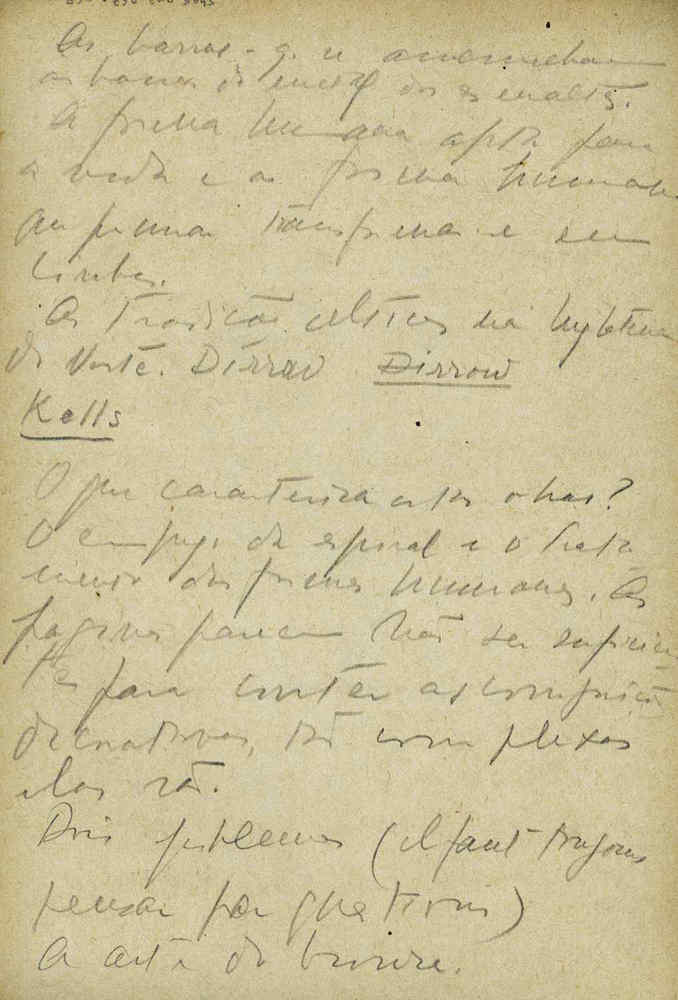 As barras - q. se
as barras de
A forma humana apta para
a vida e a forma humana
que
linhas.
As tradições célticas na Inglaterra
do Norte. Dirrow Dirrow
Kells
O que caracteriza estas obras?
O emprego da espiral e o trata
mento das formas humanas. As
paginas parecem não ser suficien
tes para conter as composições
decorativas, tão complexas
elas são.
Dois problemas (il faut toujours
pensar par questions)
A arte do bronze.